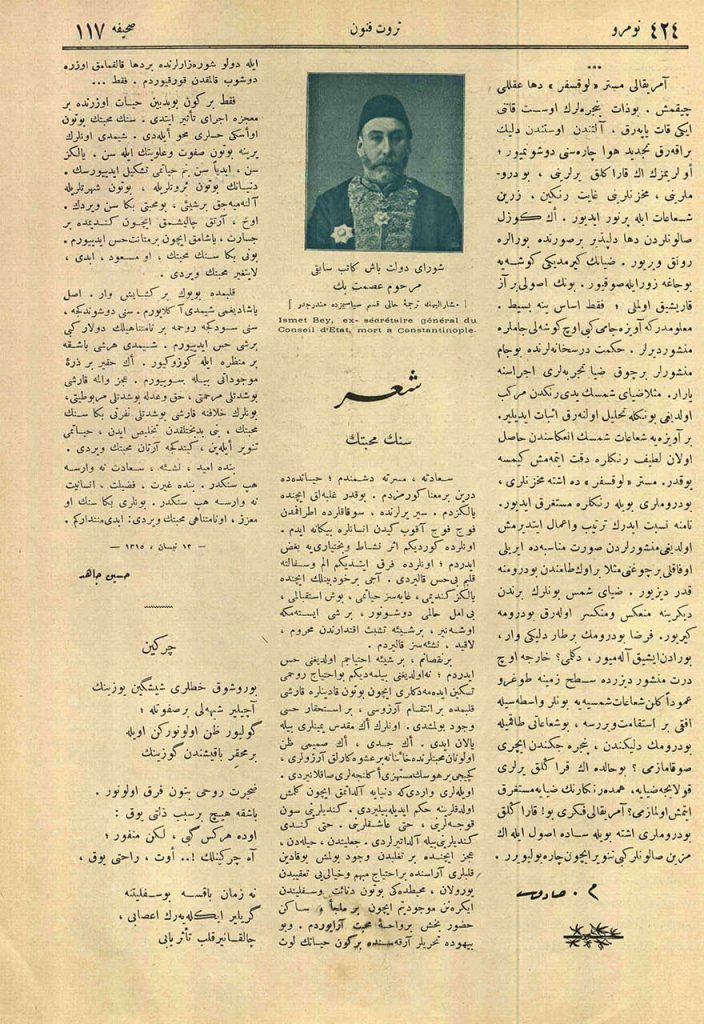 نومرو ٤٢٤
ثروت فنون
صحیفه ١١٧
آمریقالی مستر «لوقسفر» دها عقللی
چیقمش . بوذات پنجره‌لرك اوست قاتی
ایکی قات یاپه‌رق ، آلتندن اوستندن دلیك
براقه‌رق تجدید هوا چاره‌سنی دوشونمیور ؛
أولریمزك اك قاراكلق یرلرینی ، بودرو-
ملرینی ، مخزنلرینی غایت رنکین ، زرین
شعاعات ایله پرنور ایدیور . اك كوزل
صالونلردن دها دلپذیر برصورتده بورالره
رونق ویریور . ضیانك كیرمدیكی كوشه‌یه
بوجاغه زورایله‌صوقیور . بونك اصولی‌برآز
قاریشیق اولملی ؛ فقط اساس پنه بسیط .
معلومدركه آویزه‌جامی‌كبی اوچ كوشه‌لی‌جاملره
منشوردیرلر . حكمت درسخانه‌لرنده بوجام
منشورلر برچوق ضیا تجربه‌لری اجراسنه
یارار . مثلاضیای شمسك یدی‌رنكدن مركب
اولدیغی بونكله تحلیل اولنه‌رق اثبات ایدیلیر .
بر آویزه‌یه شعاعات شمسك انعكاسندن حاصل
اولان لطیف رنكلره دقت ایتمه‌مش كیمسه
یوقدر . مستر «لوقسفر» ده اشته مخزنلری ،
بودروملری بویله رنكلره مستغرق ایدیور .
نامنه نسبت ایدرك ترتیب واعمال ایتدیرمش
اولدیغی‌منشورلردن صورت مناسبه‌ده ایریلی
اوفاقلی برچوغنی مثلا براوك طامندن بودرومنه
قدر دیزیور . ضیای شمس بونلرك برندن
دیكرینه منعكس ومنكسر اوله‌رق بودرومه
كیریور . فرضا بودرومك برطار دلیكی وار ،
بورادن‌ایشیق آله‌میور ، دكلمی؟ خارجه اوچ
درت منشور دیزرده سطح زمینه طوغرو
عموداًكلن شعاعات شمسیه‌یه بونلر واسطه‌سیله
افقی بر استقامت‌ویررسه ، بوشعاعاتی طاقمیله
بودرومك دلیكندن ، پنجره جكندن ایچری
صوقامازمی ؟ بوحالده اك قراكلق یرلری
قولایجه‌ضیایه ، همده‌رنكارنك ضیایه‌مستغرق
ایتمش‌اولمازمی؟ آمریقالی‌فكری بو! قاراكلق
بودروملری اشته بویله ساده اصول ایله اك
مزین صالونلركبی‌تنویر ایچون‌چاره‌بولیویرر .
م . صادق
شورای دولت باش كاتب سابقی
مرحوم عصمت بك
[ مشارالیهك ترجمهٔ حالی قسم سیاسیمزده مندرجدر ]
Ismet Bey, ex- secrétaire général du
Conseil d'Etat, mort a Constantinople.
شعر
سنك محبتك
سعادته ، مسرته دشمندم ؛ حیاتده‌ده
درین برمعنا كورمزدم . بوقدر غلبه‌لق ایچنده
یالكزدم . سیر یرلرنده ، سوقاقلرده اطرافمدن
فوج فوج آقوب كیدن انسانلره بیكانه ایدم .
اونلرده كوردیكم اثر نشاط وبختیاری‌یه بغض
ایدردم ؛ اونلرده فرق ایتدیكم الم وسفالته
قلبم بی‌حس قالیردی . آجی برخودبینلك ایچنده
یالكز كندیمی ، غایه‌سز حیاتمی ، بوش استقبالمی ،
بی‌امل حالمی دوشونور ، بر شی ایسته‌مكه
اوشه‌نیر ، برشیئه تشبث اقتدارندن محروم ،
لاقید . نشئه‌سز قالیردم .
برنقصانم ، بر شیئه احتیاجم اولدیغنی حس
ایدردم ؛ نه‌اولدیغنی بیله‌مدیكم بواحتیاج روحمی
تسكین ایده‌مدكلری ایچون بوتون قادینلره قارشی
قلبمده بر انتقام آرزوسی ، بر استحقار حسی
وجود بولمشدی . اونلرك اك مقدس یمینلری بیله
یالان ایدی . اك جدی ، اك صمیمی ظن
اولونان محبتلرنده خائنانه برعشوه‌كارلق آرزولری ،
كیجی برهوسك مستهزی اكلنجه‌لری صاقلانیردی .
اویله‌لری واردی‌كه دنیایه آلداتمق ایچون كلمش
اولدقلرینه حكم ایدیله‌بیلیردی . كندیلرینی سون
قوجه‌لرینی ، حتی عاشقلرینی . حتی كندی
كندیلرینی‌بیله آلداتیرلردی . جعلیتدن ، حیله‌دن ،
عجز ایچنده بر تغلبدن وجود بولمش بوقادین
قلبلری آراسنده براحتیاج مبهم وخیالی‌یی تعقیبدن
یورولان ، محیطمده‌كی بوتون دنائت وسفلیتدن
ایكره‌نن موجودیتم ایچون بر ملجأ و ساكن
حضور بخش برواحهٔ محبت آرایوردم . وبو
بیهوده تحریلر آرقه‌سنده بركون حیاتك لوث
ایله دولو شوره‌زارلرنده بردها قالقمامق اوزره
دوشوب قالمقدن قورقیوردم . فقط ...
فقط بركون بویدبین حیات اوزرنده بر
معجزه اجرای تأثیر ایتدی . سنك محبتك بوتون
اواسكی حسلری محو ایله‌دی . شیمدی اونلرك
یرینه بوتون صفوت وعلویتك ایله سن . یالكز
سن ، ابدیاً سن بنم حیاتمی تشكیل ایدییورسك .
دنیانك بوتون ثروتلریله ، بوتون شهرتلریله
آلنه‌میه‌جق برشیئی ، بومحبتی بكا سن ویردك .
اوخ ، آرتق چالیشمق ایچون كندیمده بر
جسارت ، یاشامق ایچون برمتانت‌حس ایدییورم .
بونی بكا سنك محبتك ، او مسعود ، ابدی ،
لایتغیر محبتك ویردی .
قلبمده بویوك بر كشایش وار . اصل
یاشادیغمی شیمدی آكلایورم . سنی دوشوندكجه ،
سنی سودكجه روحمه بر نامتناهیلك دولارلركبی
برشی حس ایدییورم . شیمدی هرشی باشقه
بر منظره ایله كوزوكیور . اك حقیر بر ذرهٔ
موجوداتی بیله سویورم . عجز والمه قارشی
بوشدتلی مرحمتی ، حق وعدله بوشدتلی مربوطیتی،
بونلرك خلافنه قارشی بوشدتلی نفرتی بكا سنك
محبتك ، بنی بدبختلقدن تخلیص ایدن ، حیاتمی
تنویر ایله‌ین ، كیتدكجه آرتان محبتك ویردی .
بنده امید ، نشئه ، سعادت نه وارسه
هپ سنكدر . بنده غیرت . فضیلت ، انسانیت
نه وارسه هپ سنكدر . بونلری بكا سنك او
معزز ، اونامتناهی محبتك ویردی: ابدی‌منتداركم .
— ١٣ نیسان ، ١٣١٥ —
حسین جاهد
چركین
بوروشوق خطلری شیشكین یوزینك
آچیلیر شبهه‌لی برصفوتله ؛
كولیور ظن اولونوركن اویله
برمحقر باقیشندن كوزینك
ضجرت روحی بتون فرق اولونور .
باشقه هیچ برسبب ذلتی یوق :
اوده هركس كبی ، لكن منفور ؛
آه چركینلك !.. أوت ، راحتی یوق ،
نه زمان باقسه بوسفلیتنه
كریلیر ایكله‌یه‌رك اعصابی ،
چالقانیرقلب تأثریابی